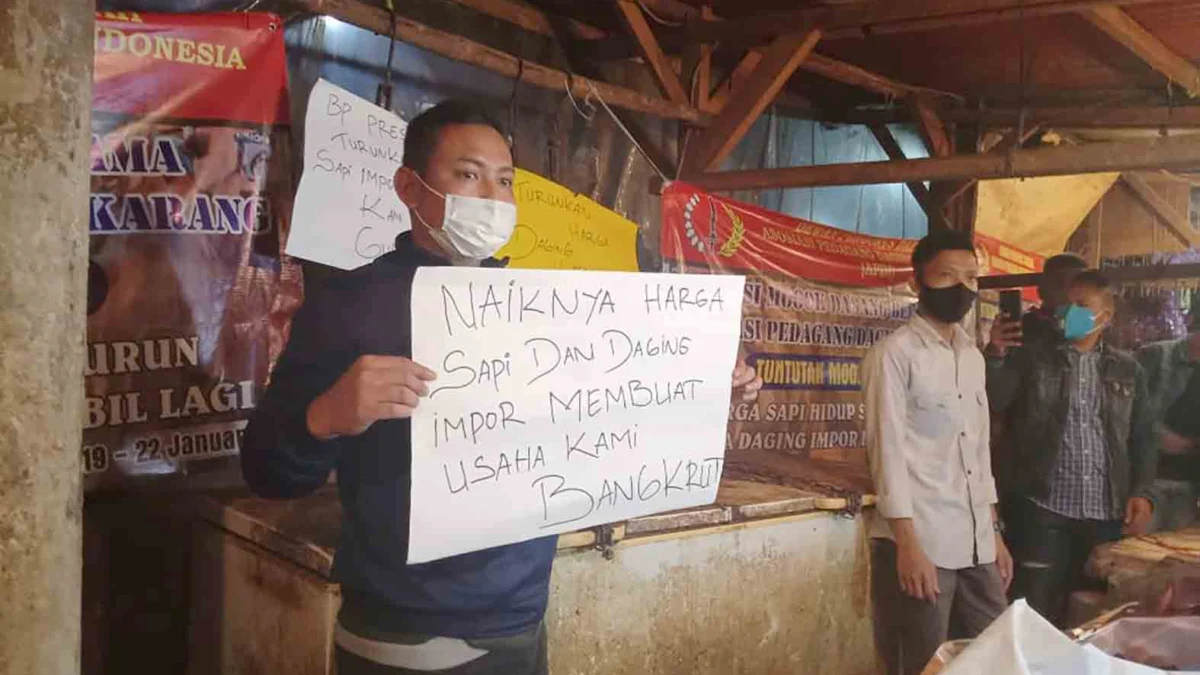 INDONESIA
AMA
KARANG
URUN
BIL LAGI
19 - 22 Januar
BP PRES
TURUNK
SAPI IMPO
KAM
GU
TURUNKAN
HARGA
DAGING
NAIKNYA HARGA
SAPI DAN DAGING
IMPOR MEMBUAT
USAHA KAMI
BANGKRUT
SI MOGOK DAGANG BE
ASI PEDAGANG DAG
TUNTUTAN MOG
RGA SAPI HIDUP S
A DAGING IMPOR